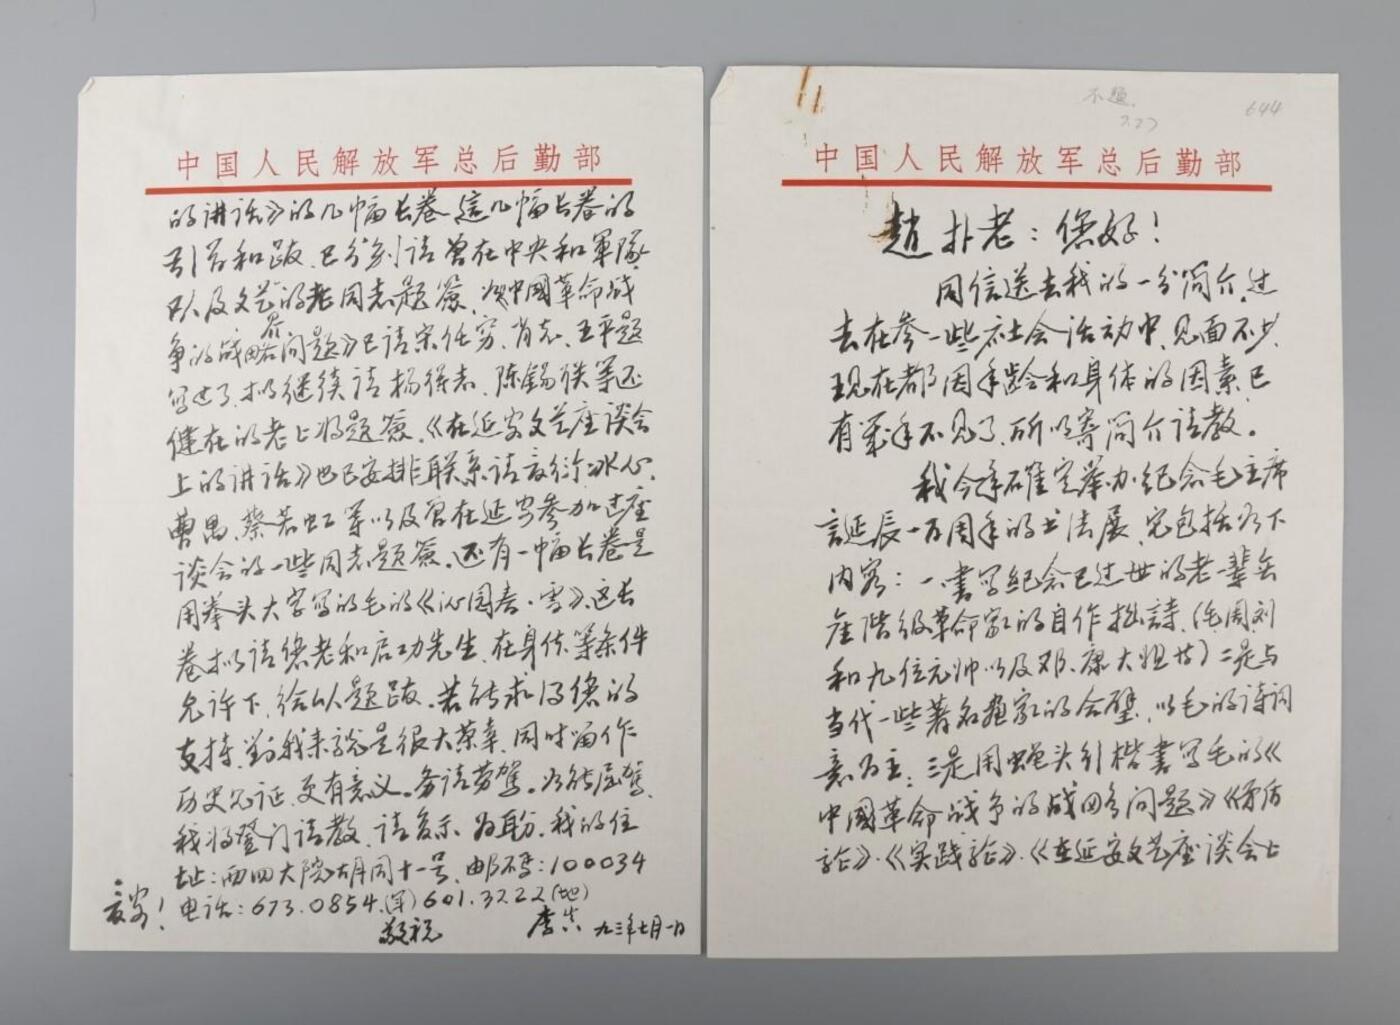 不题
7.27
644
中国人民解放军总后勤部
趙朴老：您好！
同信送去我的一分简介，过
去在参一些社会活动中，见面不少，
现在都因年龄和身体的因素，已
有几年不见了，所以寄简介请教。
我今年确定举办纪念毛主席
誕辰一百周年的书法展，它包括以下
内容：一書写纪念已过世的老一辈无
产阶级革命家的自作拙詩，（毛、周、刘
和九位元帅以及邓、康大姐等）二是与
当代一些著名画家的合璧，以毛的诗词
意为主；三是用蝇头引楷書写毛的《
中國革命战争的战略问题》《矛盾
论》·《实践论》·《在延安文艺座谈会上
中国人民解放军总后勤部
的讲话》的几幅长卷，這几幅长卷的
引首和跋，已分别请曾在中央和軍隊
以及文艺界的老同志题簽，如《中國革命战
争的战略问题》已请宋任穷、肖克、王平题
写过了，拟继续请杨得志、陈錫联等还
健在的老上将题簽。《在延安文艺座谈会
上的讲话》也已安排联系请夏衍、冰心、
曹禺、蔡若虹等以及曾在延安参加过座
谈会的一些同志题簽。还有一幅长卷是
用拳头大字写的毛的《沁园春·雪》，这长
卷拟请您老和启功先生，在身体等条件
允许下，给以题跋。若能求得您的
支持，對我来說是很大荣幸，同时留作
历史见证，更有意义。务请劳駕。如能屈駕，
我将登门请教，请复示为盼，我的住
址：西四大院胡同十一号，邮码：100034
电话：673.0854(军)601.3222(地)
敬祝
安！
李真 九三年七月一日